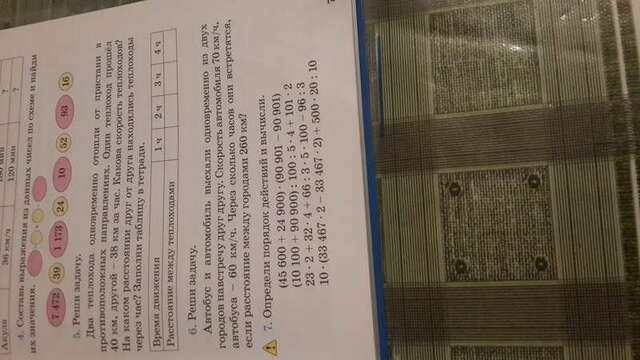 Акула 36 км/ч 120 мин ?
4. Составь выражения из данных чисел по схеме и найди
их значения.
7 472 39 1 173 24 10 52 93 16
5. Реши задачу.
Два теплохода одновременно отошли от пристани в
противоположных направлениях. Один теплоход прошёл
40 км, другой – 38 км за час. Какова скорость теплоходов?
На каком расстоянии друг от друга находились теплоходы
через час? Заполни таблицу в тетради.
Время движения 1 ч 2 ч 3 ч 4 ч
Расстояние между теплоходами
6. Реши задачу.
Автобус и автомобиль выехали одновременно из двух
городов навстречу друг другу. Скорость автомобиля 70 км/ч,
автобуса – 60 км/ч. Через сколько часов они встретятся,
если расстояние между городами 260 км?
7. Определи порядок действий и вычисли.
(45 600 + 24 900) · (90 901 – 90 901)
(10 100 + 90 900) : 100 : 5 · 4 + 101 · 2
23 · 2 + 32 · 4 + 66 : 3 · 5 · 100 – 96 : 3
10 · (33 467 · 2 – 33 467 · 2) + 500 · 20 : 10